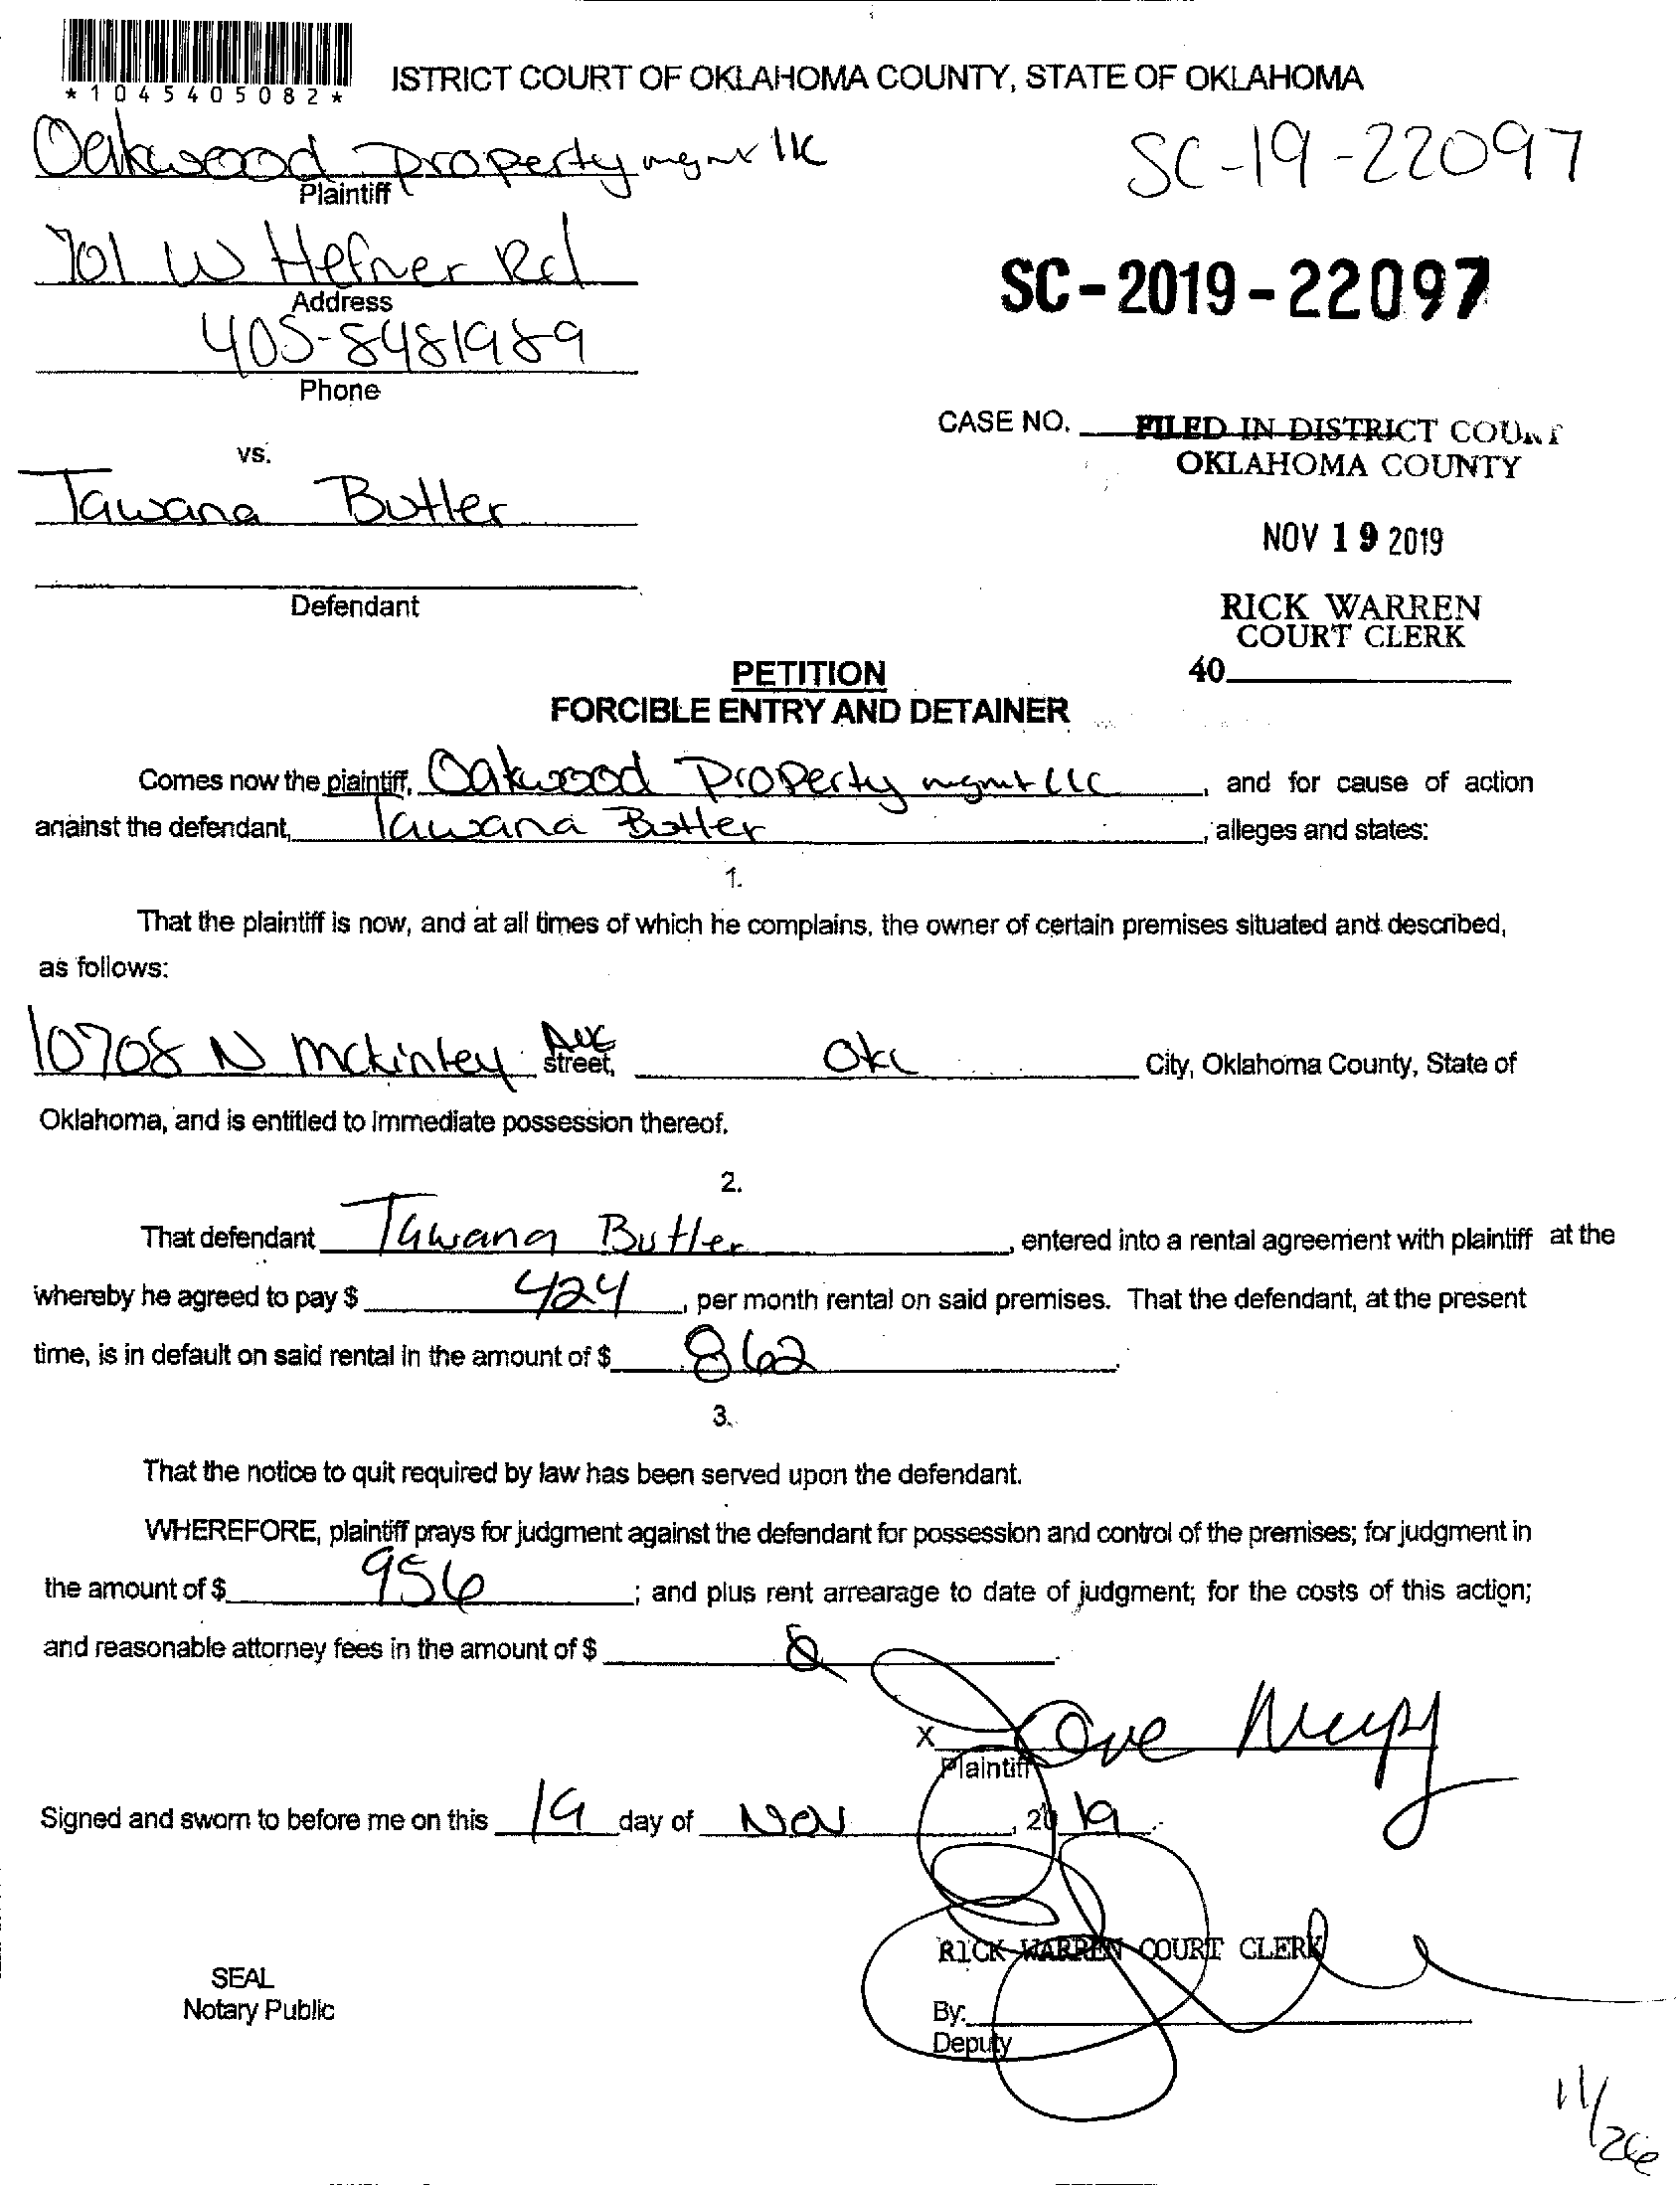 *1045405082*
ISTRICT COURT OF OKLAHOMA COUNTY, STATE OF OKLAHOMA
Oakwood property mgmt llc
SC-19-22097
Plaintiff
701 W Hefner Rd
SC-2019-22097
Address
405-8481989
Phone
CASE NO. FILED IN DISTRICT COURT
OKLAHOMA COUNTY
vs.
Tawana Butler
NOV 19 2019
Defendant
RICK WARREN
COURT CLERK
40
PETITION
FORCIBLE ENTRY AND DETAINER
Comes now the plaintiff, Oakwood Property mgmt LLC, and for cause of action
against the defendant, Tawana Butler, alleges and states:
1.
That the plaintiff is now, and at all times of which he complains, the owner of certain premises situated and described,
as follows:
10708 N Mckinley Ave street, Okc City, Oklahoma County, State of
Oklahoma, and is entitled to immediate possession thereof.
2.
That defendant Tawana Butler, entered into a rental agreement with plaintiff at the
whereby he agreed to pay $ 424, per month rental on said premises. That the defendant, at the present
time, is in default on said rental in the amount of $ 862.
3.
That the notice to quit required by law has been served upon the defendant.
WHEREFORE, plaintiff prays for judgment against the defendant for possession and control of the premises; for judgment in
the amount of $ 956; and plus rent arrearage to date of judgment; for the costs of this action;
and reasonable attorney fees in the amount of $
X
Plaintiff
Signed and sworn to before me on this 19 day of Nov, 2019.
RICK WARREN COURT CLERK
SEAL
Notary Public
By:
Deputy
11/26